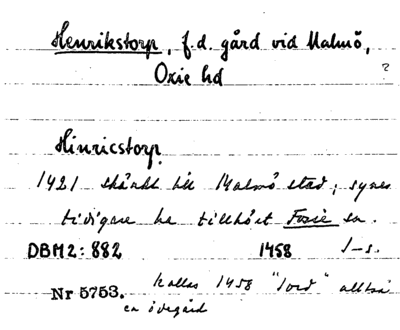 Henrikstorp, f.d. gård vid Malmö,
Oxie hd ?
Hinricstorp
1421 skänkt till Malmö stad; synes
tidigare ha tillhört Fosie sn.
DBM2:882 1458 J-s.
Nr 5753. kallas 1458 "Jord" alltså
en ödegård